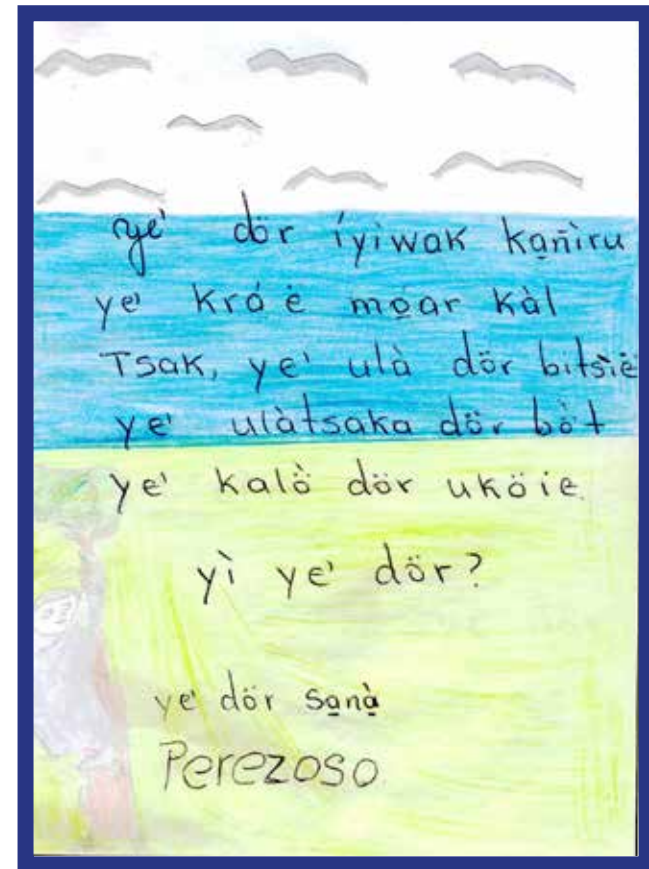 ye' dör íyiwak ka̱ñìru
ye' króè mo̱ar kàl
Tsak, ye' ulà dör bitsìë
ye' ulàtsaka dör bò̀t
ye' kalö̀ dör uköie.
yì ye' dör?
ye' dör sa̱nà̱
Perezoso